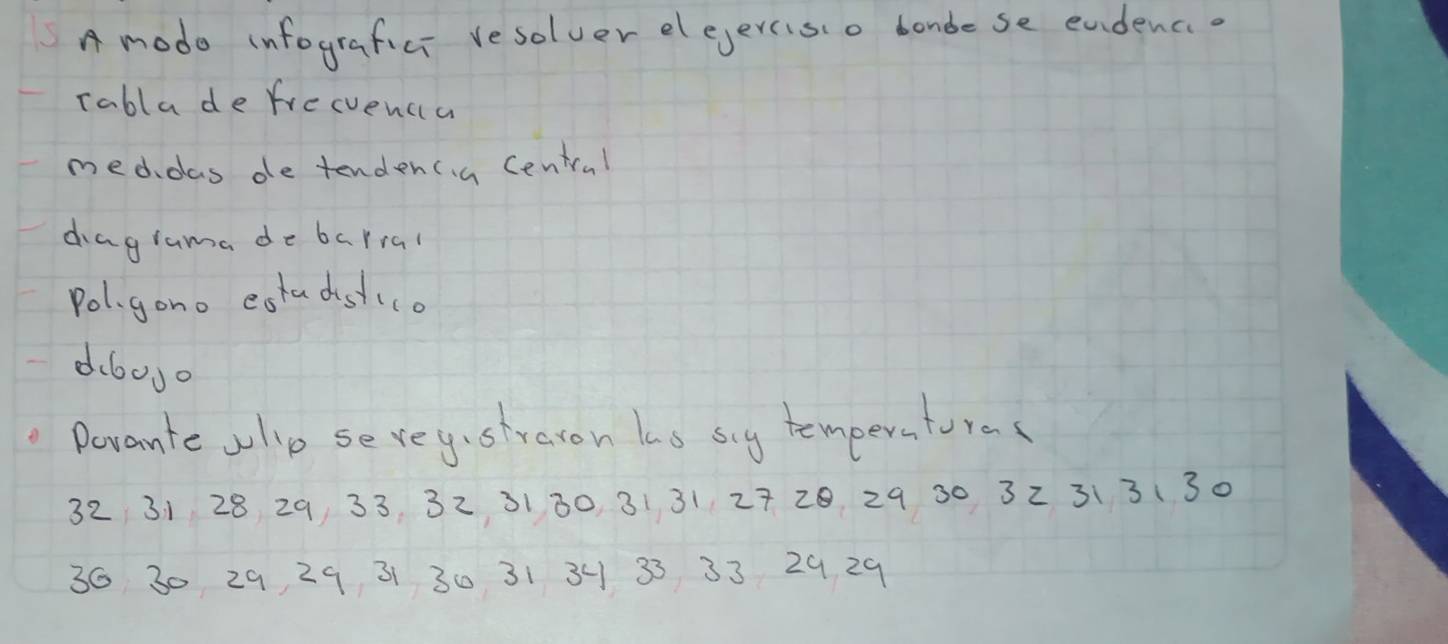 15 A modo infografia resolver el ejercisio donde se evidencie
- Tabla de frecuencia
- medidas de tendencia central
- diagrama de barras
- Poligono estadistico
- dibujo
• Durante julio se registraron las sig temperaturas
32, 31, 28, 29, 33, 32, 31, 30, 31, 31, 27, 28, 29, 30, 32, 31, 31, 30
30, 30, 29, 29, 31, 30, 31, 34, 33, 33, 29, 29